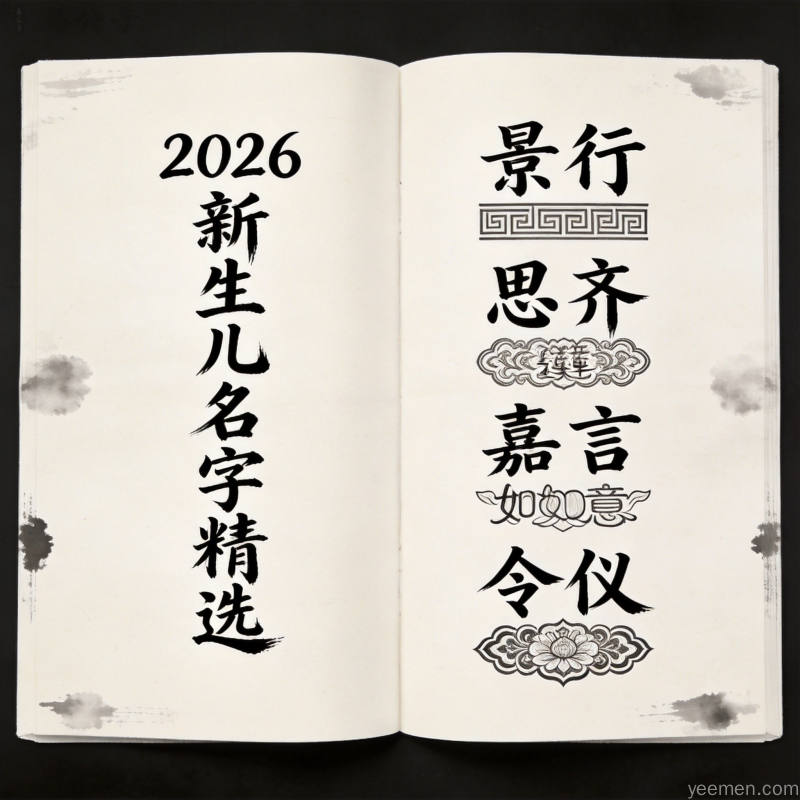 2026
新生儿名字精选
景行
思齐
嘉言
如如意
令仪
yeemen.com